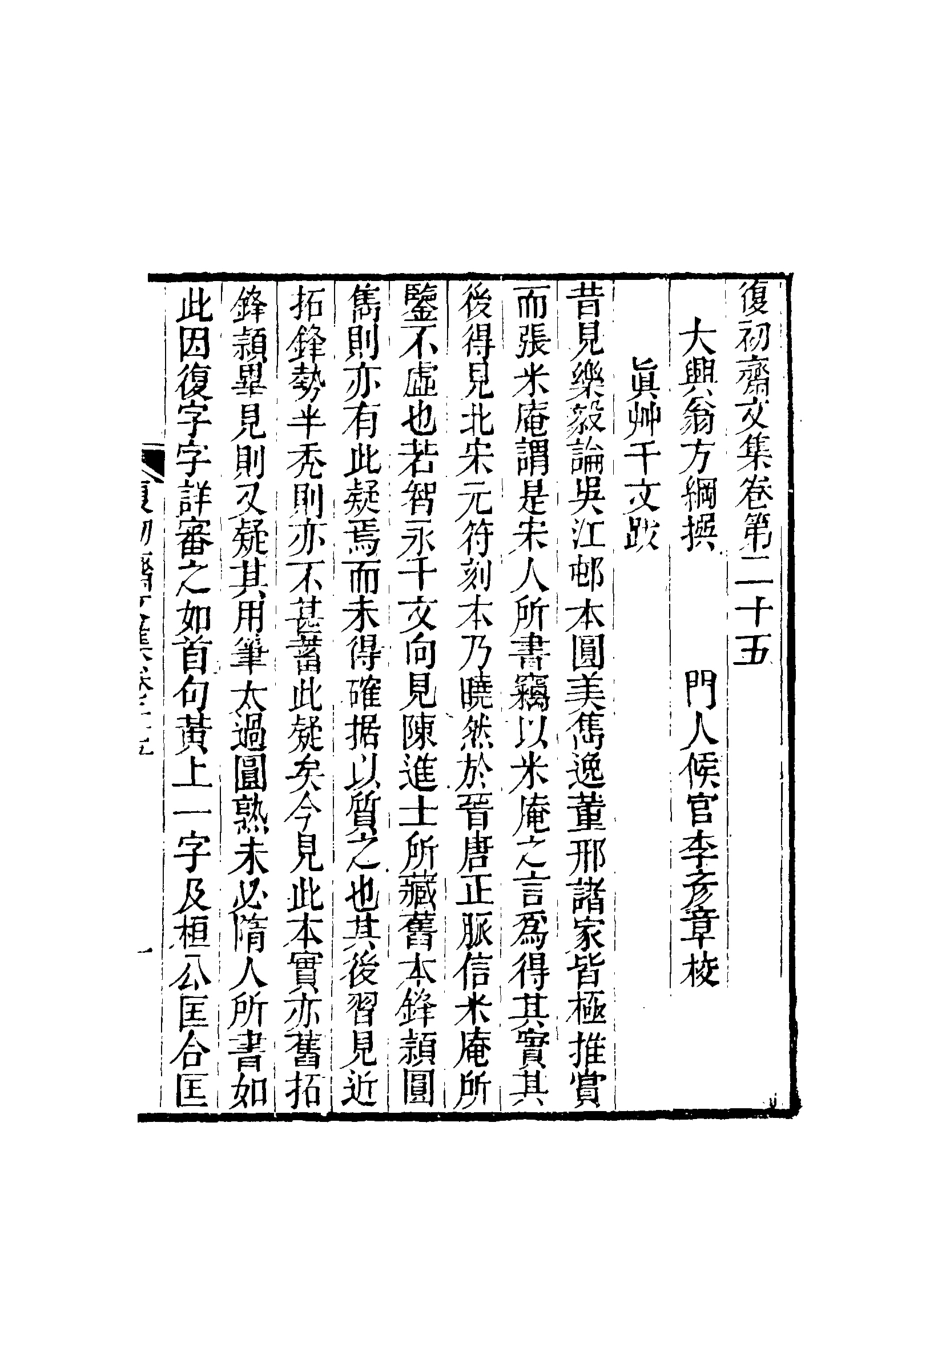 復初齋文集卷第二十五
大興翁方綱撰　門人候官李彥章校
眞艸千文跋
昔見樂毅論吳江邨本圓美雋逸董邢諸家皆極推賞
而張米庵謂是宋人所書竊以米庵之言爲得其實其
後得見北宋元符刻本乃曉然於晉唐正脈信米庵所
鑒不虛也若智永千文向見陳進士所藏舊本鋒穎圓
雋則亦有此疑焉而未得確据以質之也其後習見近
拓鋒勢半禿則亦不甚蓄此疑矣今見此本實亦舊拓
鋒穎畢見則又疑其用筆太過圓熟未必隋人所書如
此因復字字詳審之如首句黃上一字及桓公匡合匡
復初齋文集卷二十五
一